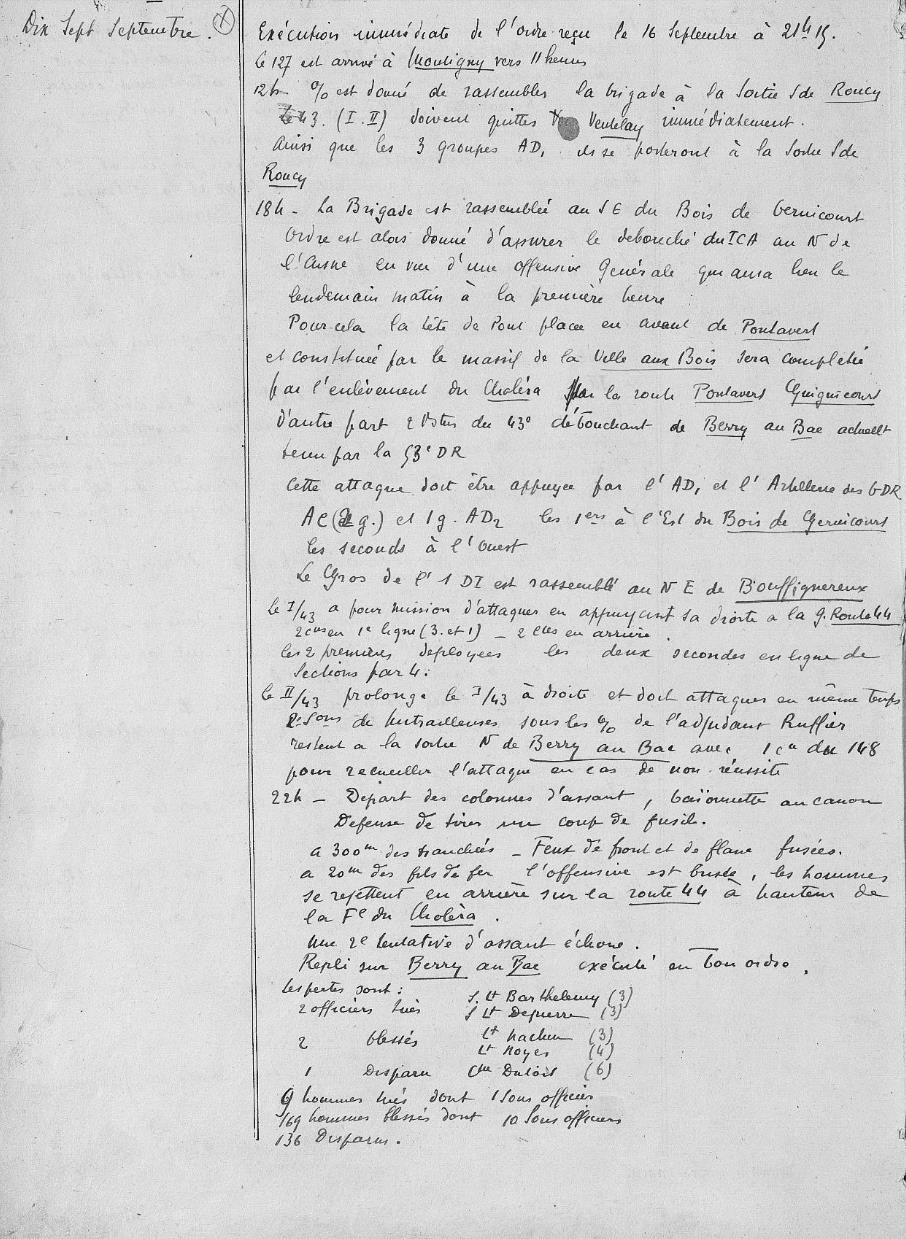 Dix Sept Septembre. (X)
Exécution immédiate de l'ordre reçu le 16 Septembre à 21h15.
le 127 est arrivé à Montigny vers 11 heures
12h - O/ est donné de rassembler la brigade à la Sortie S de Roucy
Le 43. (I. II) doivent quitter Ventelay immédiatement.
Ainsi que les 3 groupes AD1 ils se porteront à la Sortie S de
Roucy
18h - La Brigade est rassemblée au SE du Bois de Gernicourt
Ordre est alors donné d'assurer le debouché du 1CA au N de
l'Aisne en vue d'une offensive Générale qui aura lieu le
lendemain matin à la première heure
Pour cela la tête de Pont placée en avant de Pontavert
et constituée par le massif de la Ville aux Bois sera completée
par l'enlèvement du Choléra par la route Pontavert Guignicourt
D'autre part 2 Btons du 43e débouchant de Berry au Bac actuellt
tenu par la 53e DR
Cette attaque doit être appuyée par l'AD1 et l'Artillerie des 6 DR
AC (2 g.) et 1 g. AD2 les 1ers à l'Est du Bois de Gernicourt
les seconds à l'Ouest
Le Gros de l'1 DI est rassemblé au N E de Bouffignereux
le I/43 a pour mission d'attaquer en appuyant sa droite à la g. Route 44
2 cies en 1e ligne (3. et 1) - 2 cies en arrière.
les 2 premières deployées les deux secondes en ligne de
Sections par 4.
le II/43 prolonge le I/43 à droite et doit attaquer en même temps
2 Sons de Mitrailleuses sous les O/ de l'adjudant Ruffier
restent à la sortie N de Berry au Bac avec 1 cie du 148
pour recueillir l'attaque en cas de non-réussite
22h - Départ des colonnes d'assaut, baïonnette au canon
Defense de tirer un coup de fusil.
a 300m des tranchées - Feux de front et de flanc fusées.
a 20m des fils de fer l'offensive est brisée, les hommes
se rejettent en arrière sur la route 44 à hauteur de
la Fe du Choléra.
Une 2e tentative d'assaut échoue.
Repli sur Berry au Bac exécuté en bon ordre.
Les pertes sont :
2 officiers tués S. Lt Barthelemy (3)
S Lt Depierre (3)
2 blessés Lt (3)
Lt Noyer (4)
1 Disparu Cne Dutoit (6)
9 hommes tués dont 1 Sous officier
169 hommes blessés dont 10 Sous officiers
136 Disparus.